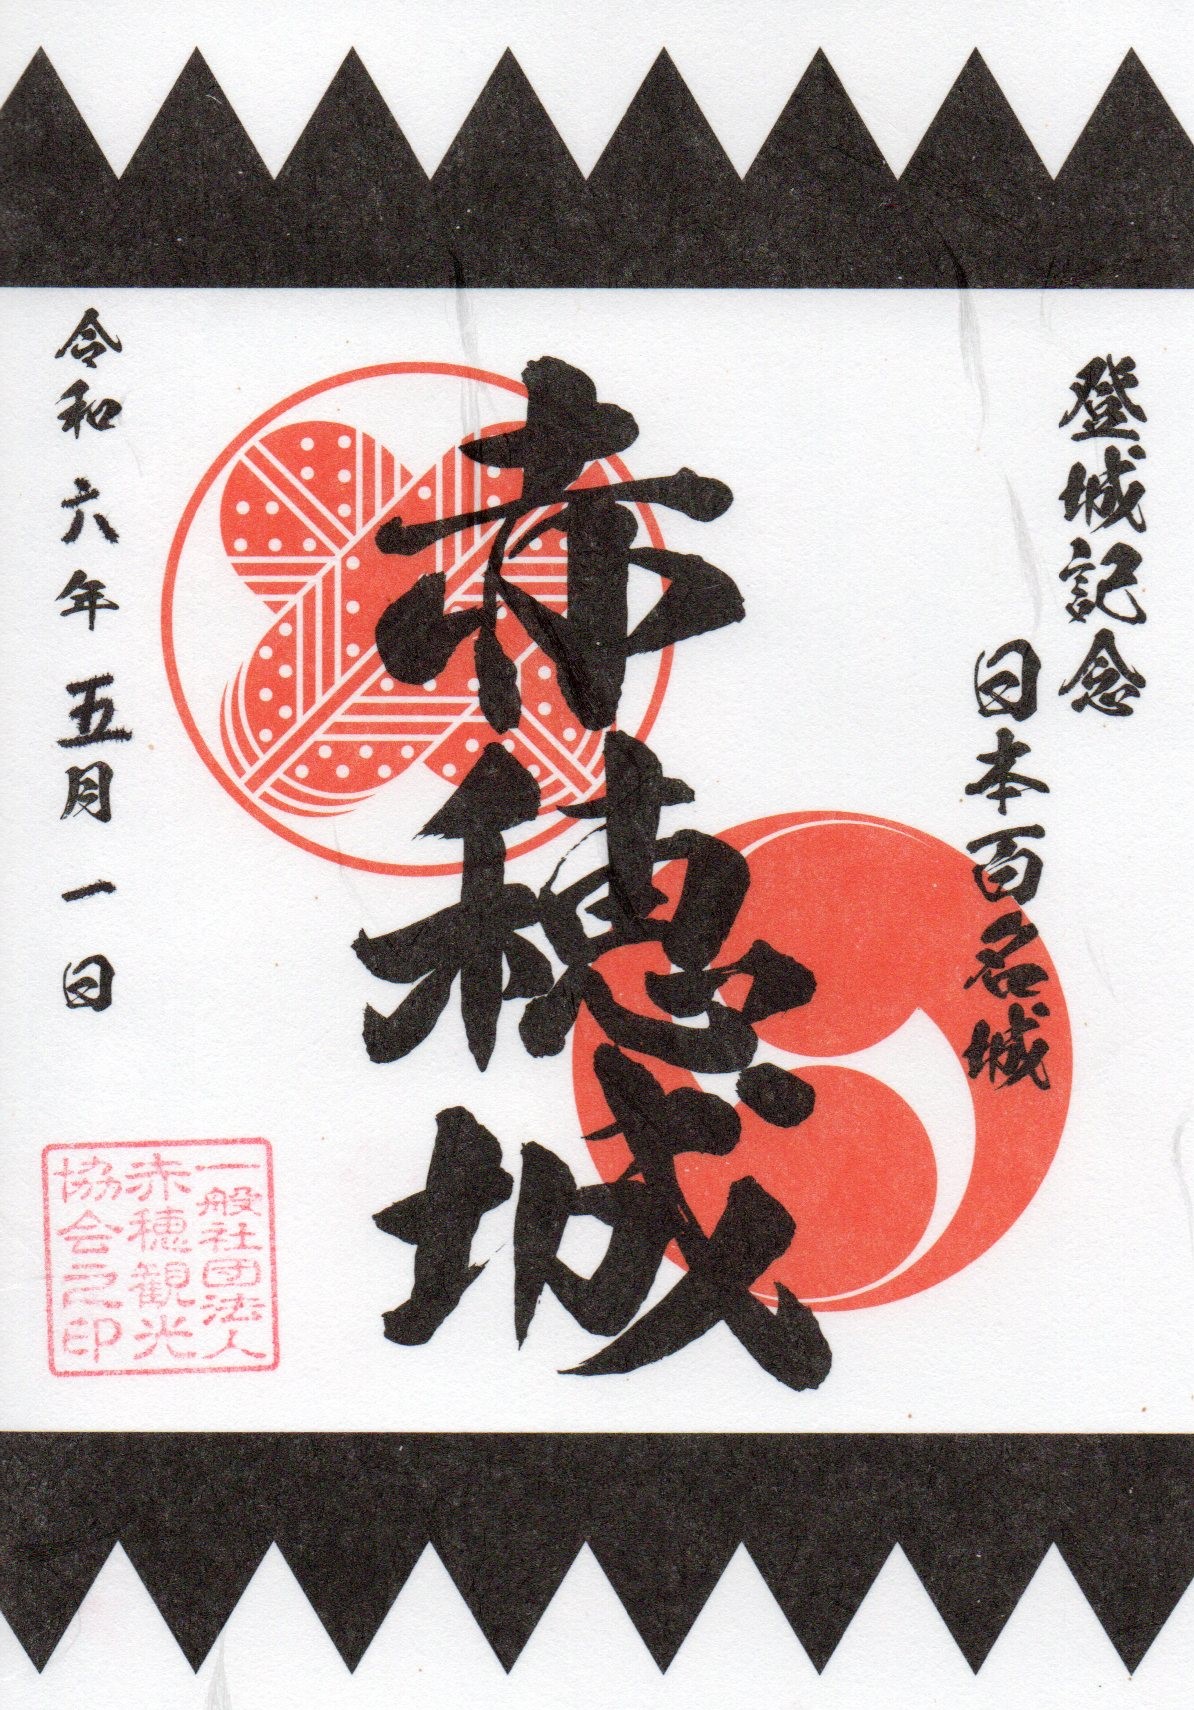 登城記念
日本百名城
赤穂城
令和六年五月一日
一般社団法人
赤穂観光
協会之印